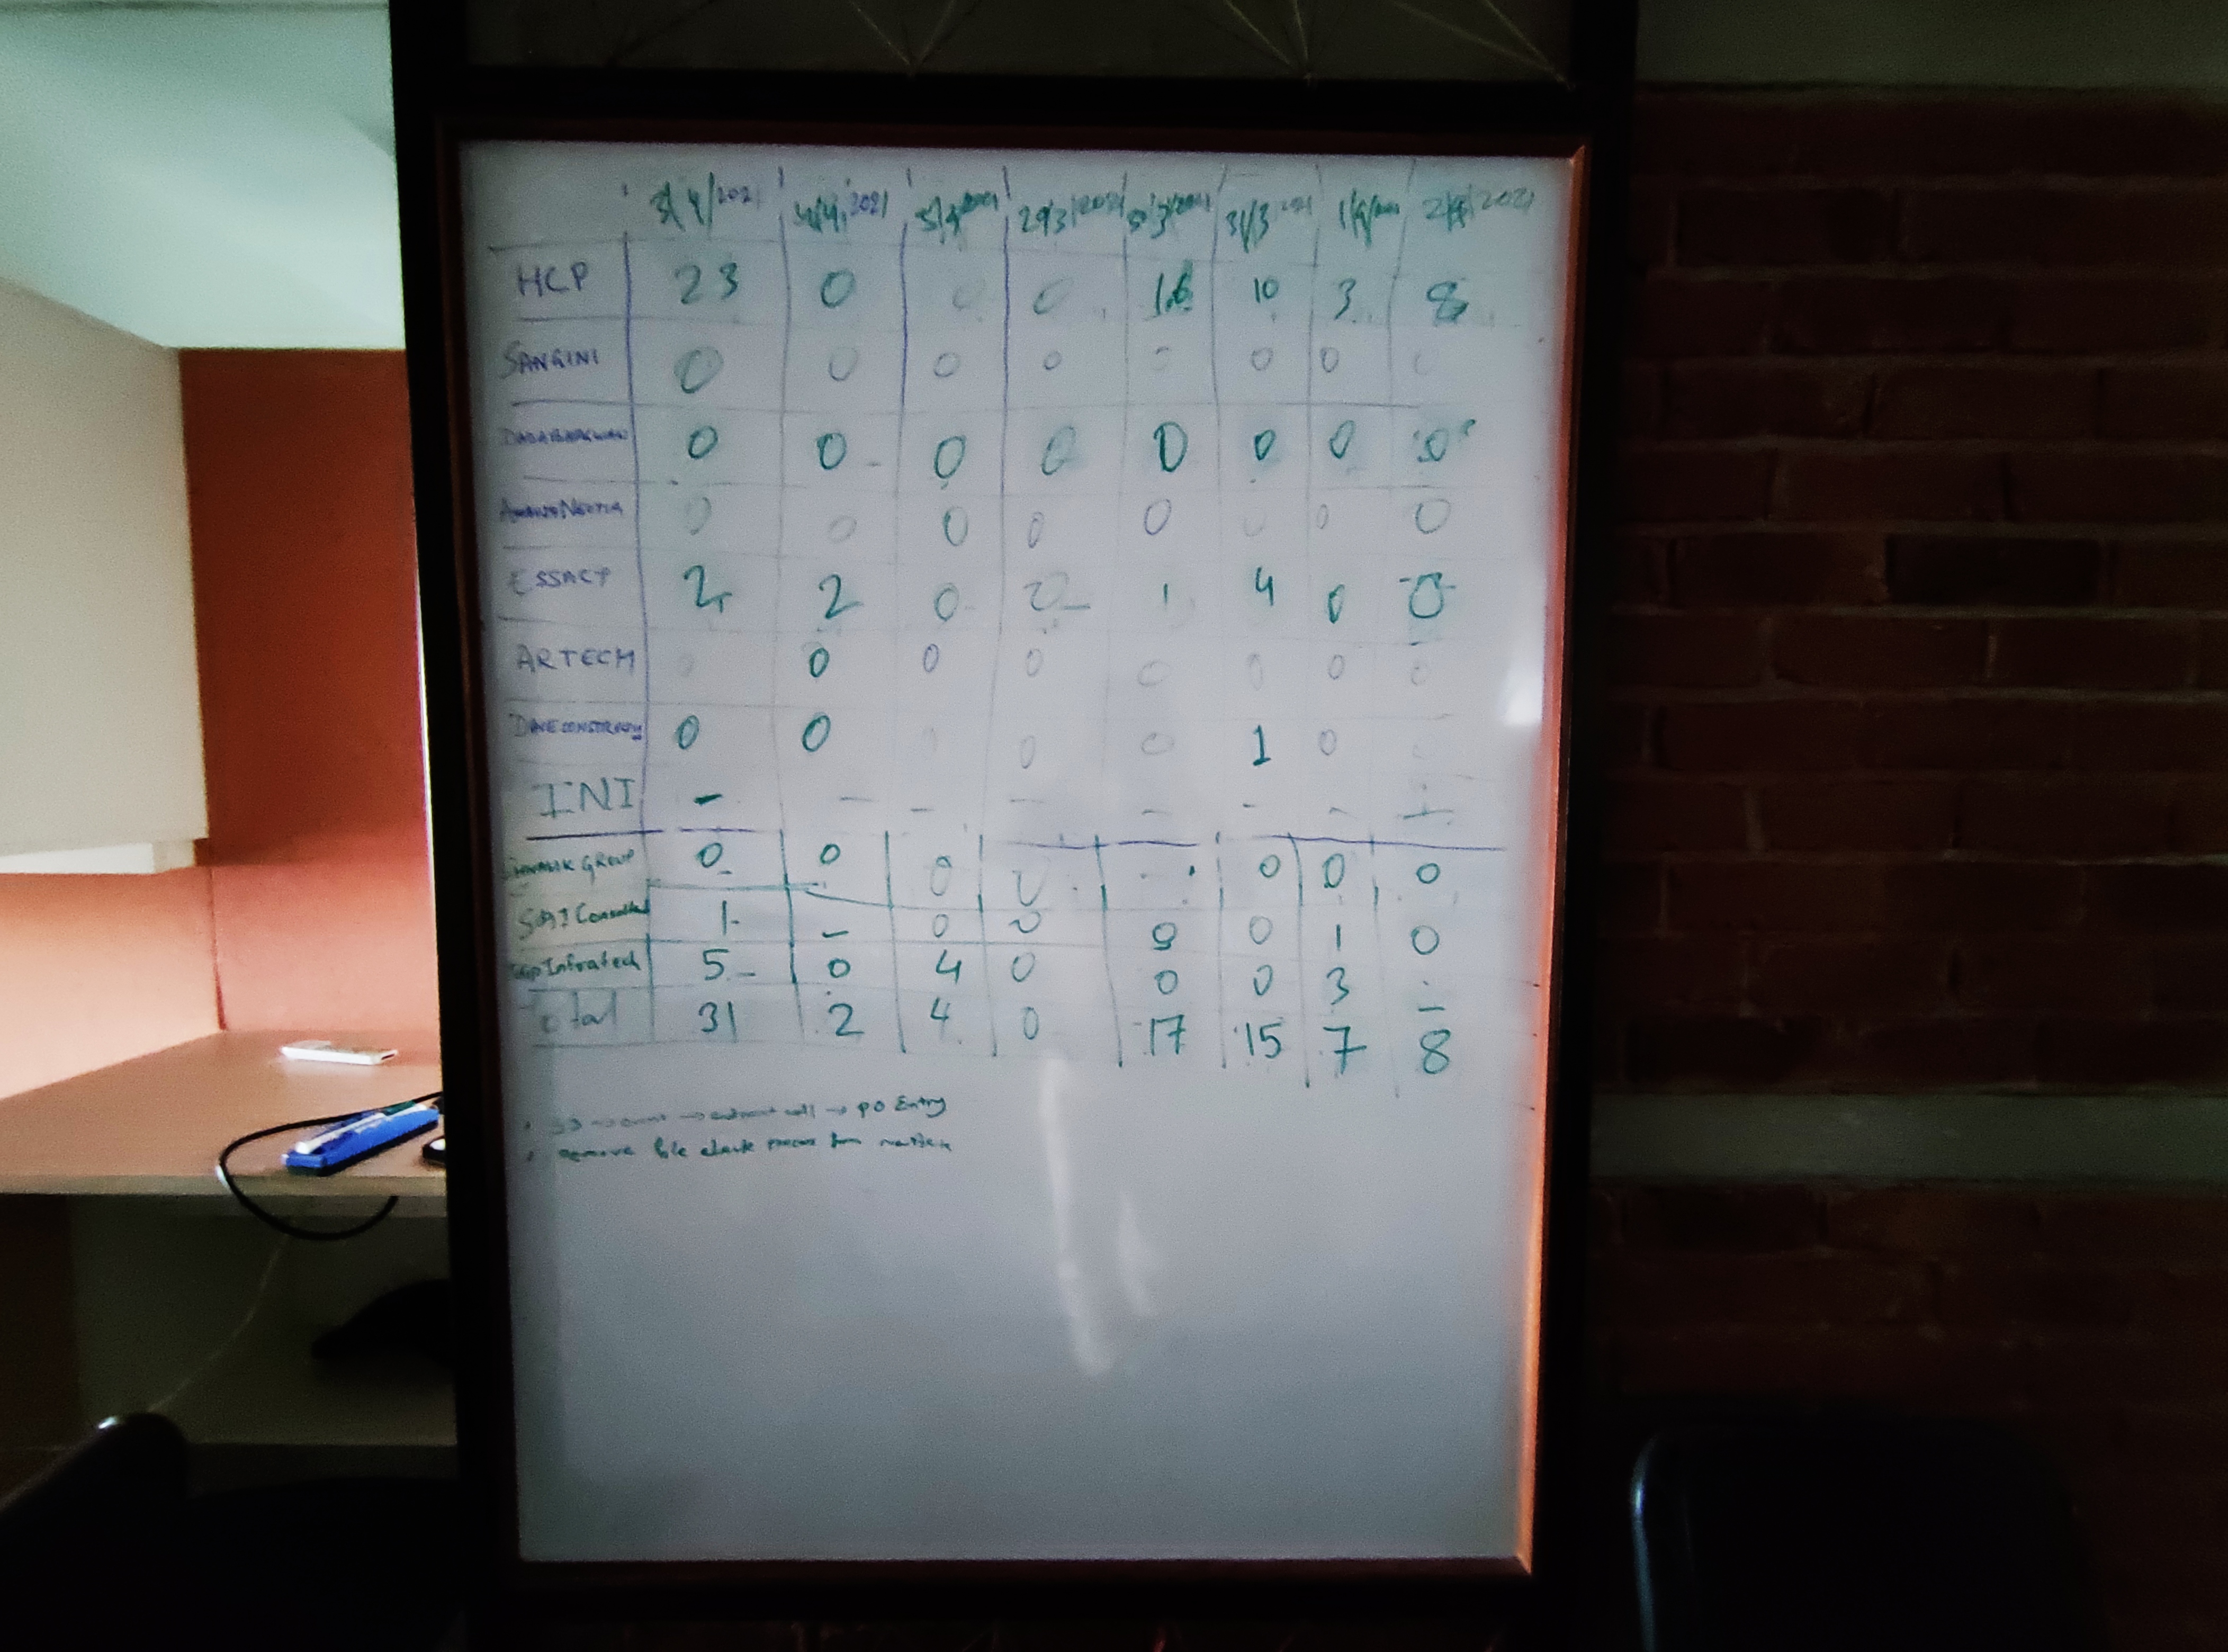 3/4/2021 4/4/2021 5/4/2021 29/3/2021 30/3/2021 31/3 2021 1/4/2021 2/4/2021
HCP 23 0 0 0 16 10 3 8
SANGINI 0 0 0 0 0 0 0 0
DADABHAGWAN 0 0 0 0 0 0 0 0
0 0 0 0 0 0 0 0
ESSACP 2 2 0 0 1 4 0 0
ARTECH 0 0 0 0 0 0 0
0 0 0 0 1 0
INI - - - - - - - -
GROUP 0 0 0 0 - 0 0 0
SAI 1 - 0 0 0 0 1 0
Infratech 5 0 4 0 0 0 3 -
Total 31 2 4 0 17 15 7 8
PO Entry
remove file